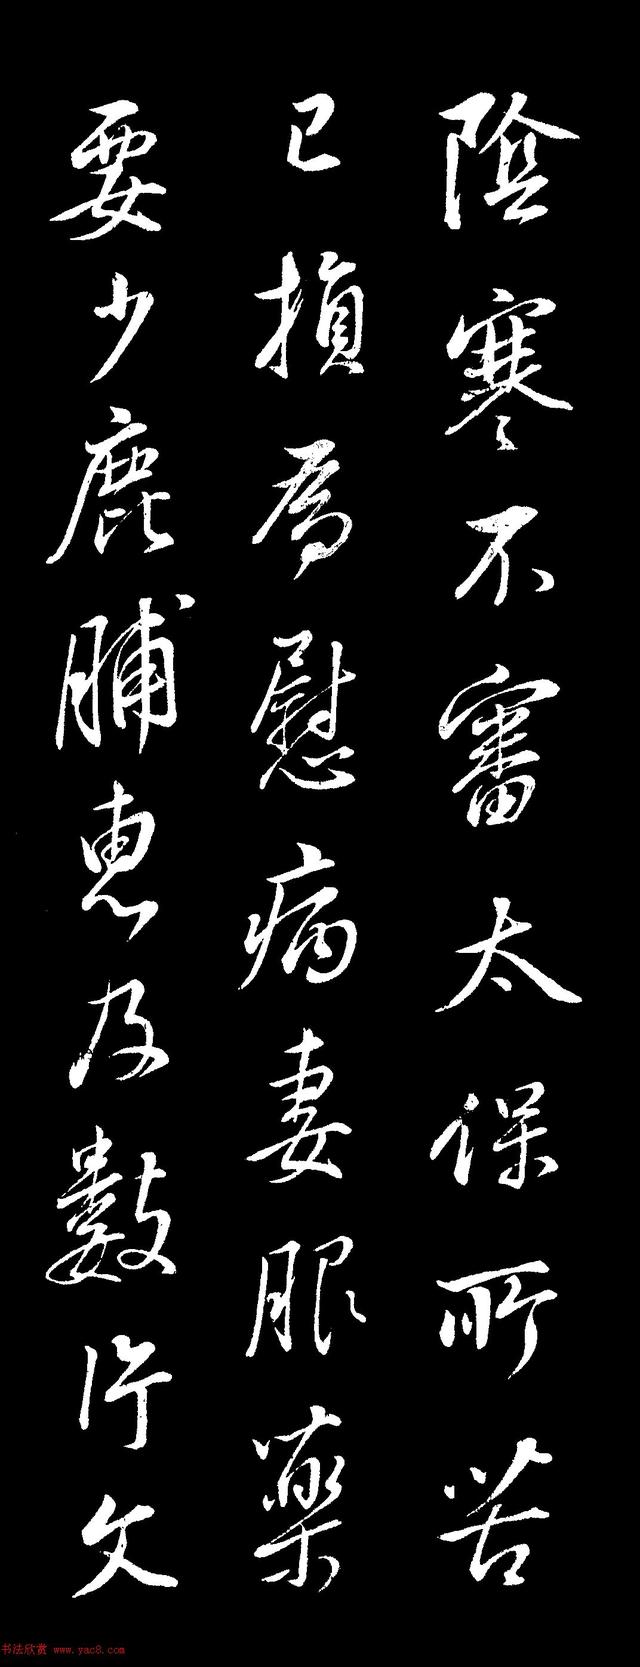 陰寒不審太保所苦
已損為慰病妻服藥
要少鹿脯惠及數片父
书法欣赏 www.yac8.com